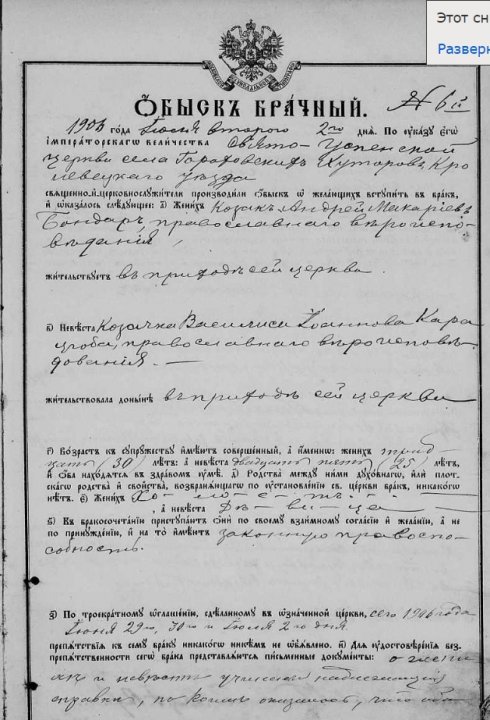 Этот сн
Разверн
Обыскъ брачный. № 6й
1906 года Июля второго 2го дня. По указу его
императорскаго величества Свято-Успенской
церкви села Хуторовъ Кро
левецкаго уѣзда
священно и церковнослужители производили обыскъ о желающихъ вступить въ бракъ,
и оказалось слѣдующее: а) Женихъ Козакъ Андрей Макаріевъ
Бондарь, православнаго вѣроиспо
вѣданія,
жительствуетъ въ приходѣ сей церкви.
б) Невѣста Козачка Василиса Іоаннова Кара
православнаго вѣроисповѣ
данія. —
жительствовала донынѣ въ приходѣ сей церкви
г) Возрастъ къ супружеству имѣютъ совершенный, а именно: женихъ трид
цать (30) лѣтъ: а невѣста двадцать пять (25) лѣтъ,
и оба находятся въ здравомъ умѣ. д) Родства между ними духовнаго, или плот-
скаго родства и свойства, возбраняющаго по установленію св. церкви бракъ, никакого
нѣтъ. е) Женихъ Хо-ло-с-тъ.
, а невѣста Дѣ-ви-ца —
ѕ) Въ бракосочетанію приступаютъ они по своему взаимному согласію и желанію, а не
по принужденію, и на то имѣютъ законную правоспо-
собность.
з) По троекратному оглашенію, сдѣланному въ означенной церкви, сего 1906 года
Іюня 29го, 30го и Іюля 2го дня
препятствія къ сему браку никакого никѣмъ не объявлено. и) Для удостовѣренія без-
препятственности сего брака представляются письменные документы: о жени
хѣ и невѣстѣ учинены надлежащія
справки, по коимъ оказалось, что оба